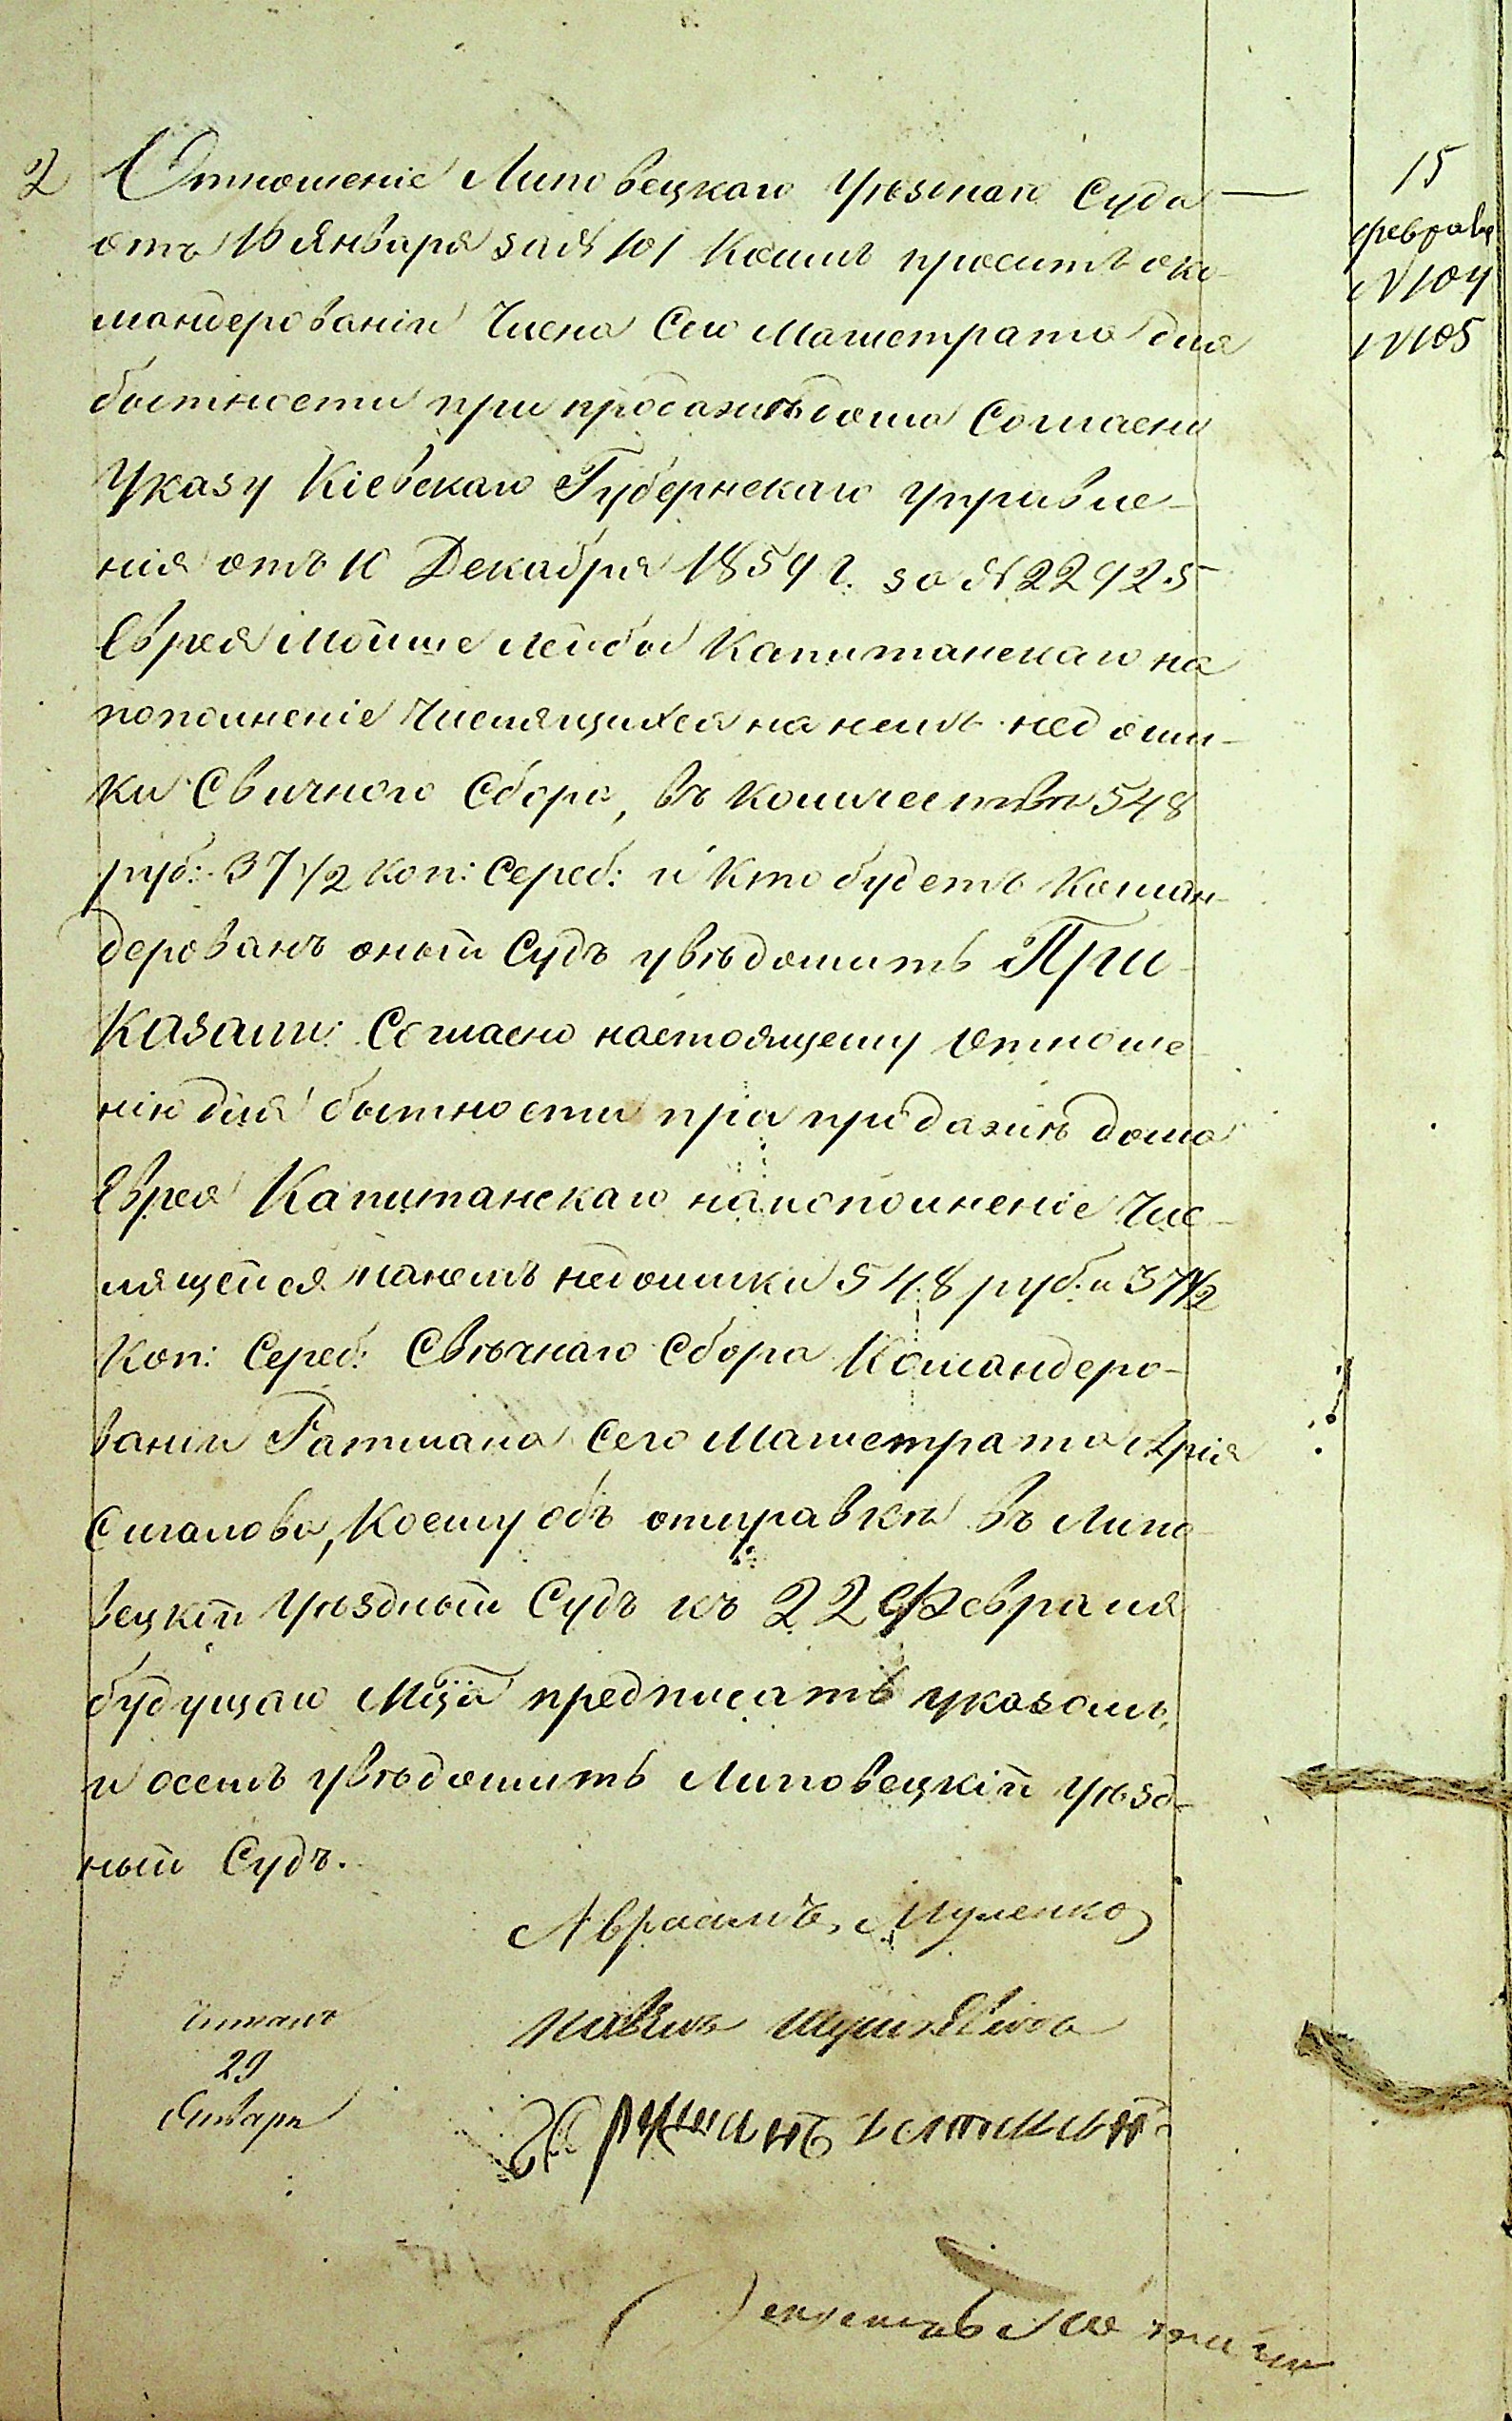 2 Отношеніе Липовецкаго Уѣзднаго Суда — 15
отъ 16 Января за № 101 Коимъ проситъ око- февраля
мандерованіи Члена Сего Магистрата для № 104
бытности при продажѣ дома Согласно № 105
Указу Кіевскаго Губернскаго Управле-
нія отъ 10 Декабря 1854 г. за № 22925
Еврея Мойше Лейбы Капитанскаго на
пополненіе Числящихся на немъ недоим-
ки Свичного Сбора, въ количествѣ 548
руб: 37 1/2 коп: Сереб: и кто будетъ коман-
дерованъ оный Судъ увѣдомить При-
казали: Согласно настоящему Отноше-
нію для бытности при продажѣ дома
Еврея Капитанскаго на пополненіе Чис-
лящейся на немъ недоимки 548 руб: и 37 1/2
Коп: Сереб: Свѣчнаго Сбора Командеро-
ваніи Ратмана Сего Магистрата Арія
Сигалова, Коему объ отправкѣ въ Липо-
вецкій Уѣздный Судъ къ 22 Февраля
будущаго Мца предписать указомъ,
и осемъ увѣдомить Липовецкій Уѣзд-
ный Судъ.
Авраамъ
Читано
29
Января